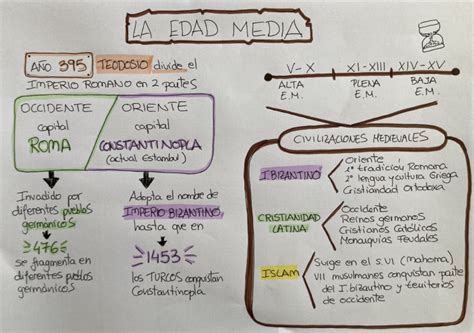 LA EDAD MEDIA
AÑO 395 TEODOSIO divide el
IMPERIO ROMANO en 2 partes
OCCIDENTE
capital
ROMA
ORIENTE
capital
CONSTANTINOPLA
(actual Estambul)
Invadido por
diferentes pueblos
germánicos
476
se fragmenta en
diferentes pueblos
germánicos
Adopta el nombre de
IMPERIO BIZANTINO,
hasta que en
1453
los TURCOS conquistan
Constantinopla
V-X
XI-XIII
XIV-XV
ALTA
E.M.
PLENA
E.M.
BAJA
E.M.
CIVILIZACIONES MEDIEVALES
I.BIZANTINO
Oriente
1º tradición Romana
2º lengua y cultura Griega
Cristiandad Ortodoxa
CRISTIANIDAD
LATINA
Occidente
Reinos germanos
Cristianos Católicos
Monarquías Feudales
ISLAM
Surge en el S.VI (mahoma)
VII musulmanes conquistan parte
del I.bizantino y territorios
de occidente